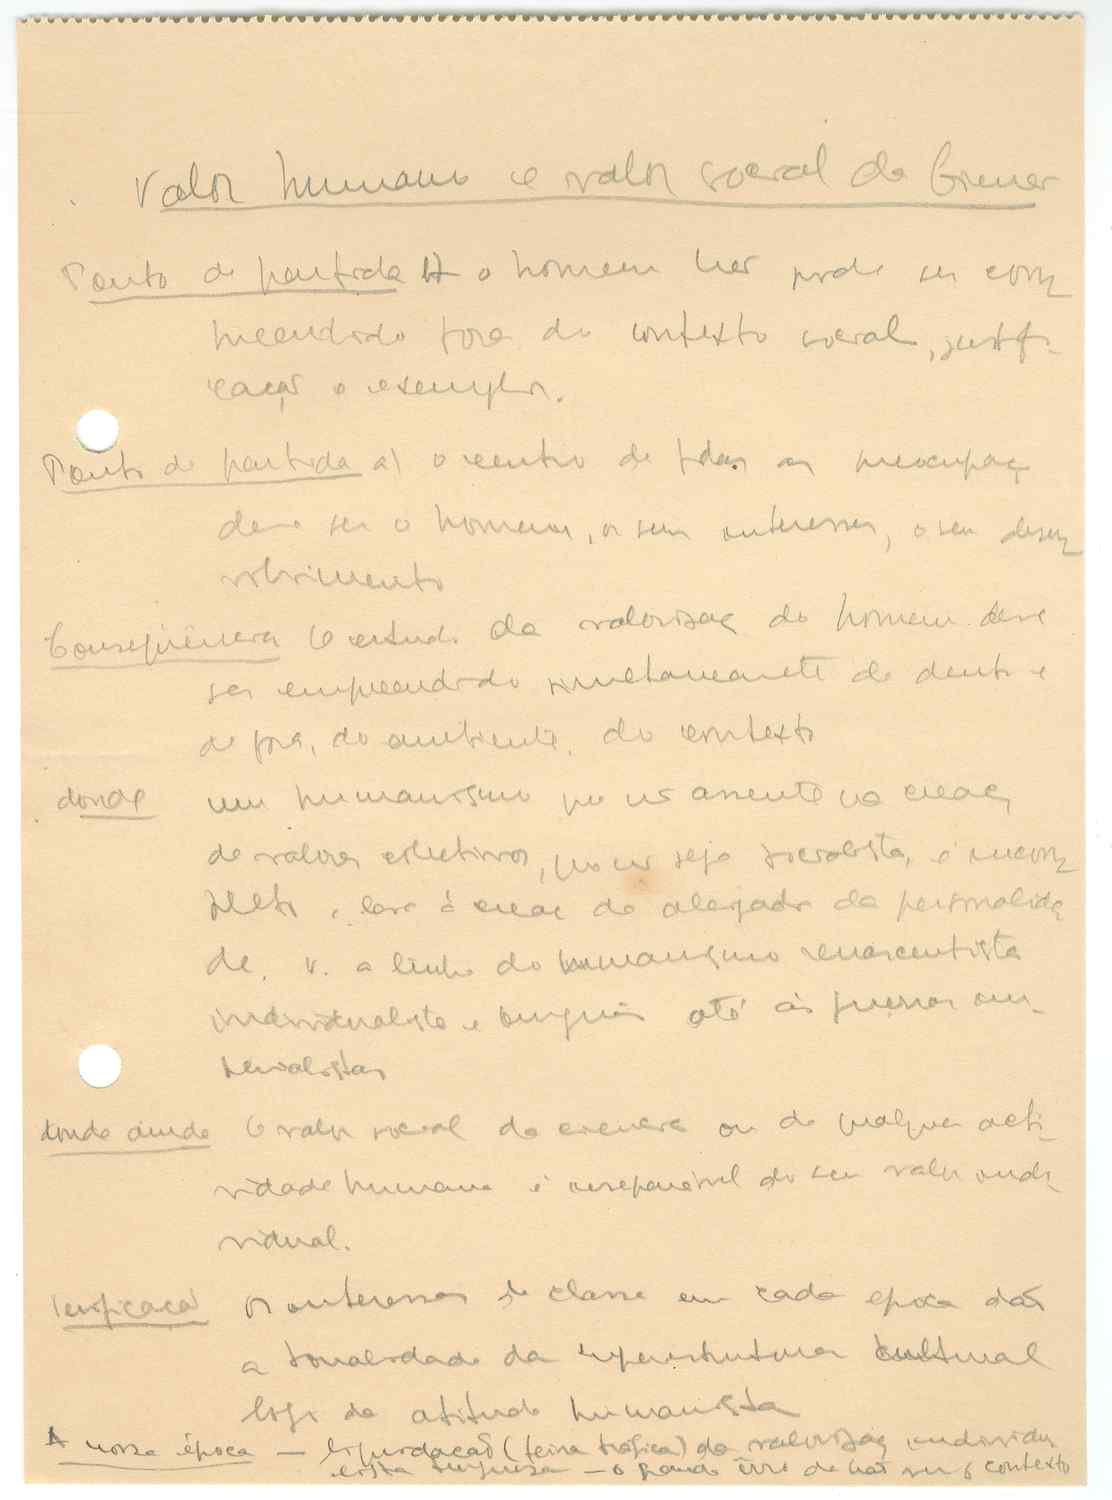 Valor humano e valor social da Ciencia
Ponto de partida o homem não pode ser com
preendido fora do contexto social, justifi-
cação e exemplos.
Ponto de partida a) o centro de todas as preocupaç
deve ser o homem, os seus interesses, o seu desen
volvimento
Consequência O estudo da valorizaç do homem deve
ser empreendido simultaneamente de dentro e
de fora, do ambiente, do contexto
donde um humanismo que não assente na creaç
de valores colectivos, que não seja socialista, é incom
pleto e leva à creaç do aleijado da personalida
de. v. a linha do humanismo renascentista
individualista e burguês até às guerras im-
perialistas
donde ainda O valor social da ciencia ou de qualquer acti-
vidade humana é inseparável do seu valor indi
vidual.
Verificação Os interesses de classe em cada época dão
a tonalidade da superestrutura cultural
logo da atitude humanista
A nossa época — liquidação (feira trágica) da valorizaç individu
— o grande êrro de não ver o contexto